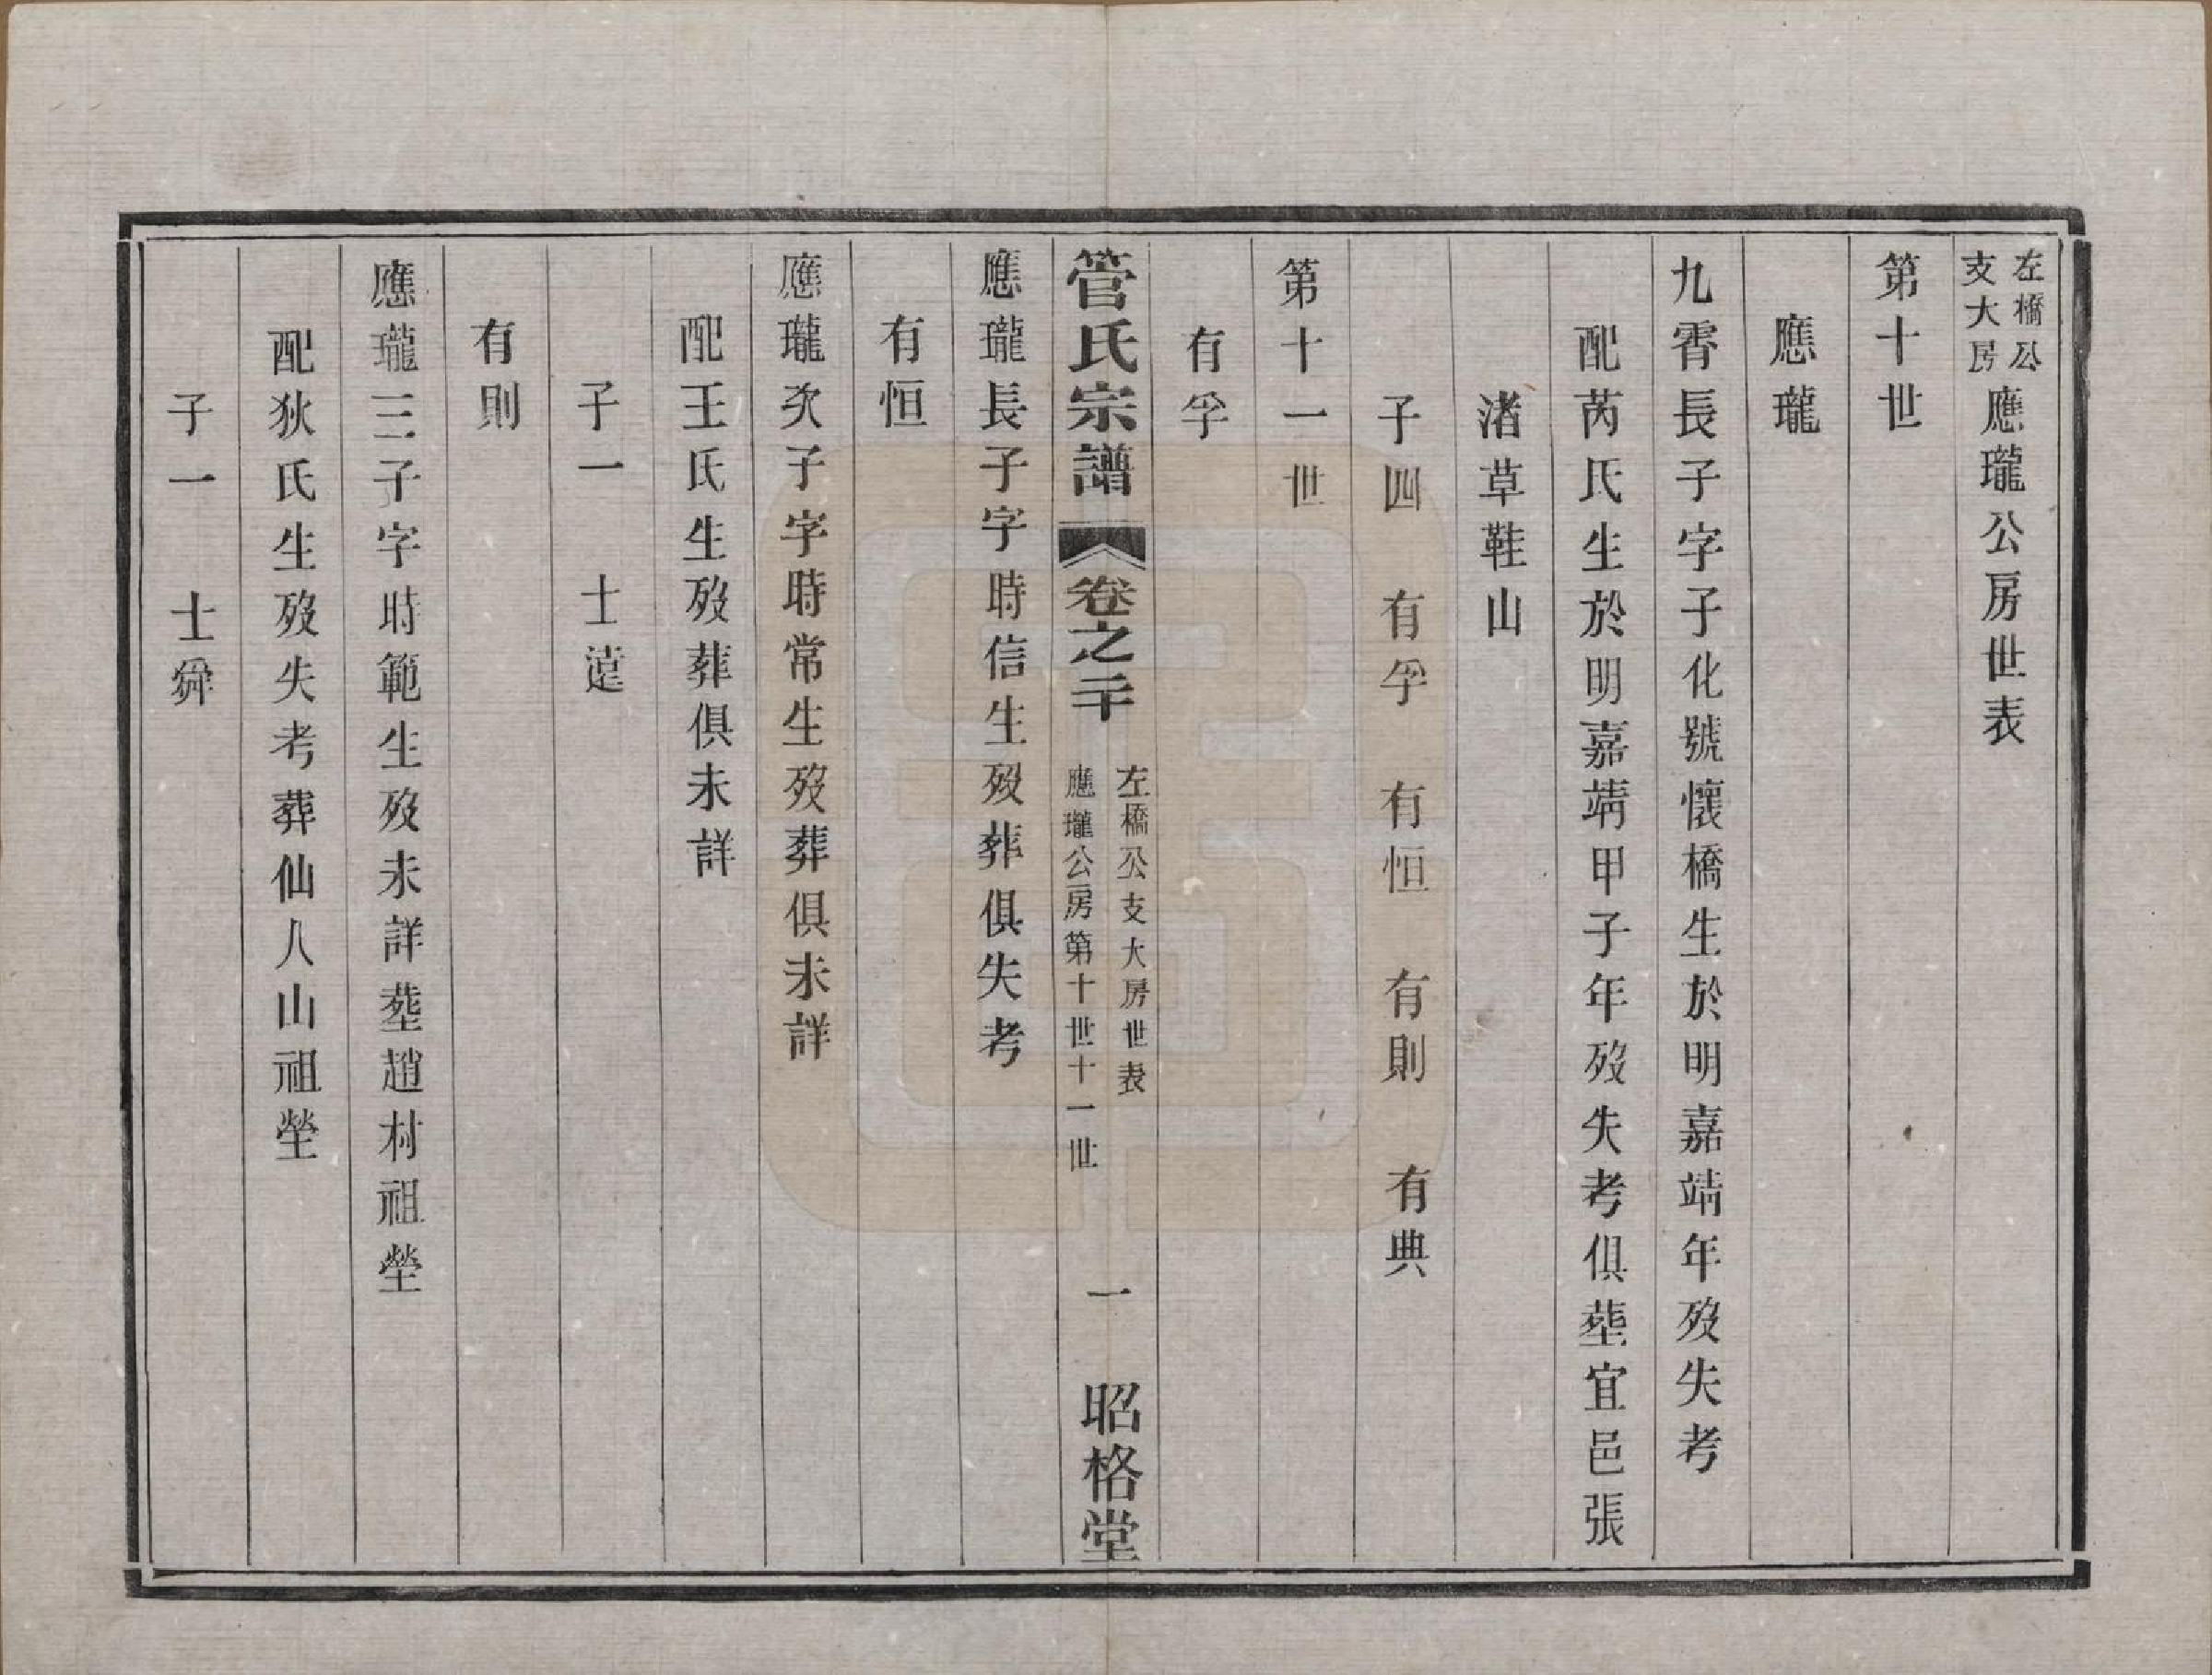 左橋公支大房應瓏公房世表
第十世
應瓏
九霄長子字子化號懷橋生於明嘉靖年歿失考
配芮氏生於明嘉靖甲子年歿失考俱塟宜邑張
渚草鞋山
子四 有孚 有恒 有則 有典
第十一世
有孚
管氏宗譜 卷之二十 左橋公支大房世表 應瓏公房第十世十一世 一 昭格堂
應瓏長子字時信生歿葬俱失考
有恒
應瓏次子字時常生歿葬俱未詳
配王氏生歿葬俱未詳
子一 士遠
有則
應瓏三子字時範生歿未詳塟趙村祖塋
配狄氏生歿失考葬仙人山祖塋
子一 士舜